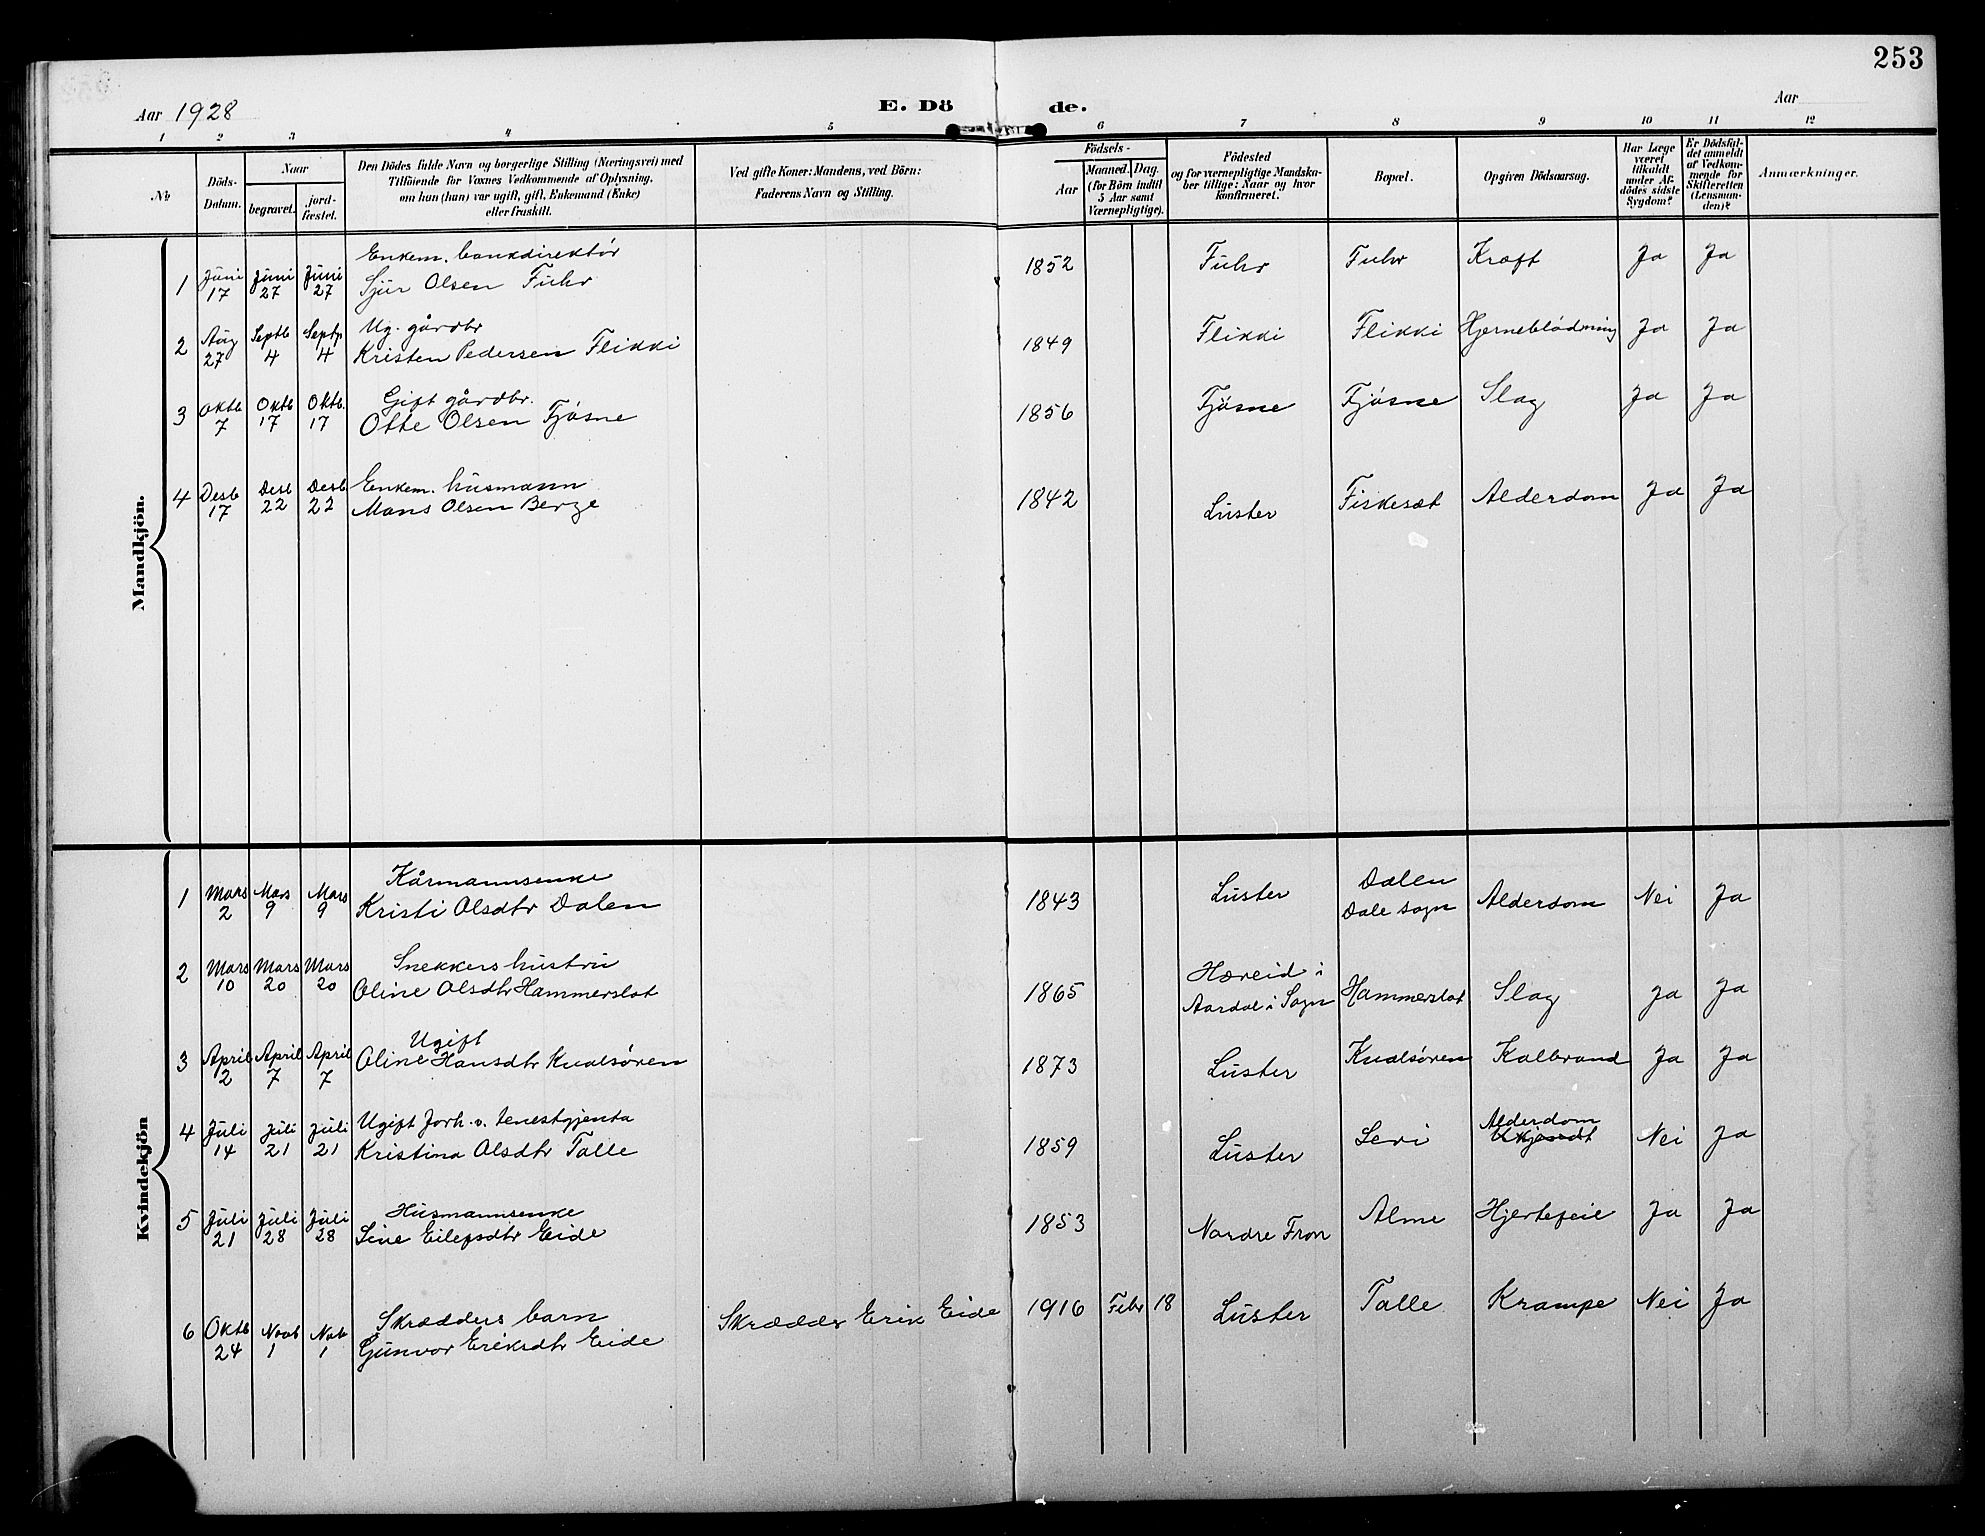 253
Aar 1928
E. Dö de.
Aar
1 2 3 4 5 6 7 8 9 10 11 12
No
Döds-Datum.
Naar
begravet.
jord-fæstet.
Den Dödes fulde Navn og borgerlige Stilling (Næringsvei) med
Tilföiende for Voxnes Vedkommende af Oplysning,
om hun (hun) var ugift, gift, Enkemand (Enke)
eller fraskilt.
Ved gifte Koner: Mandens, ved Börn:
Faderens Navn og Stilling.
Födsels-
Aar
Maaned. Dag.
(for Börn indtil
5 Aar samt
Værnepligtige).
Födested
og for værnepligtige Mandska-
ber tillige: Naar og hvor
konfirmeret.
Bopæl.
Opgiven Dödsaarsag.
Har Læge
været
tilkaldt
under Af-
dödes sidste
Sygdom?
Er Dödsfal-
det anmeldt
af Vedkom-
mende for
Skifteretten
(Lensman-
den)?
Anmærkninger.
Mandkjön.
Enkem. bankdirektör
1 Juni 17 Juni 27 Juni 27 Sjur Olsen Fuhr 1852 Fuhr Fuhr Kræft Ja Ja
Ug. gårdbr
2 Aug 27 Septb 4 Septb 4 Kristen Pedersen Flikki 1849 Flikki Flikki Hjerneblödning Ja Ja
Gift gårdbr.
3 Oktb 7 Oktb 17 Oktb. 17 Otte Olsen Fjøsne 1856 Fjøsne Fjøsne Slag Ja Ja
Enkem. husmann
4 Desb 17 Desb 22 Desb 22 Mons Olsen Berge 1842 Luster Fiskesæt Alderdom Ja Ja
Kvindekjön
Kårmannsenke Dalen
1 Mars 2 Mars 9 Mars 9 Kristi Olsdtr Dalen 1843 Luster Dale sogn Alderdom Nei Ja
Snekkers hustru Hæreid i
2 Mars 10 Mars 20 Mars 20 Oline Olsdtr Hammerslot 1865 Aardal i Sogn Hammerslot Slag Ja Ja
Ugift
3 April 2 April 7 April 7 Oline Hansdtr Kvalsøren 1873 Luster Kvalsøren Kolbrand Ja Ja
Ugift forh. v. tenestgjenta Alderdom
4 Juli 14 Juli 21 Juli 21 Kristina Olsdtr Talle 1859 Luster Leri Ukjendt Nei Ja
Husmannsenke
5 Juli 21 Juli 28 Juli 28 Sine Eilefsdtr Eide 1853 Nordre Fron Alme Hjertefeil Ja Ja
Skrædders barn
6 Oktb 24 Novb 1 Novb 1 Gunvor Eriksdtr Eide Skrædder Erik Eide 1916 Febr 18 Luster Talle Krampe Nei Ja